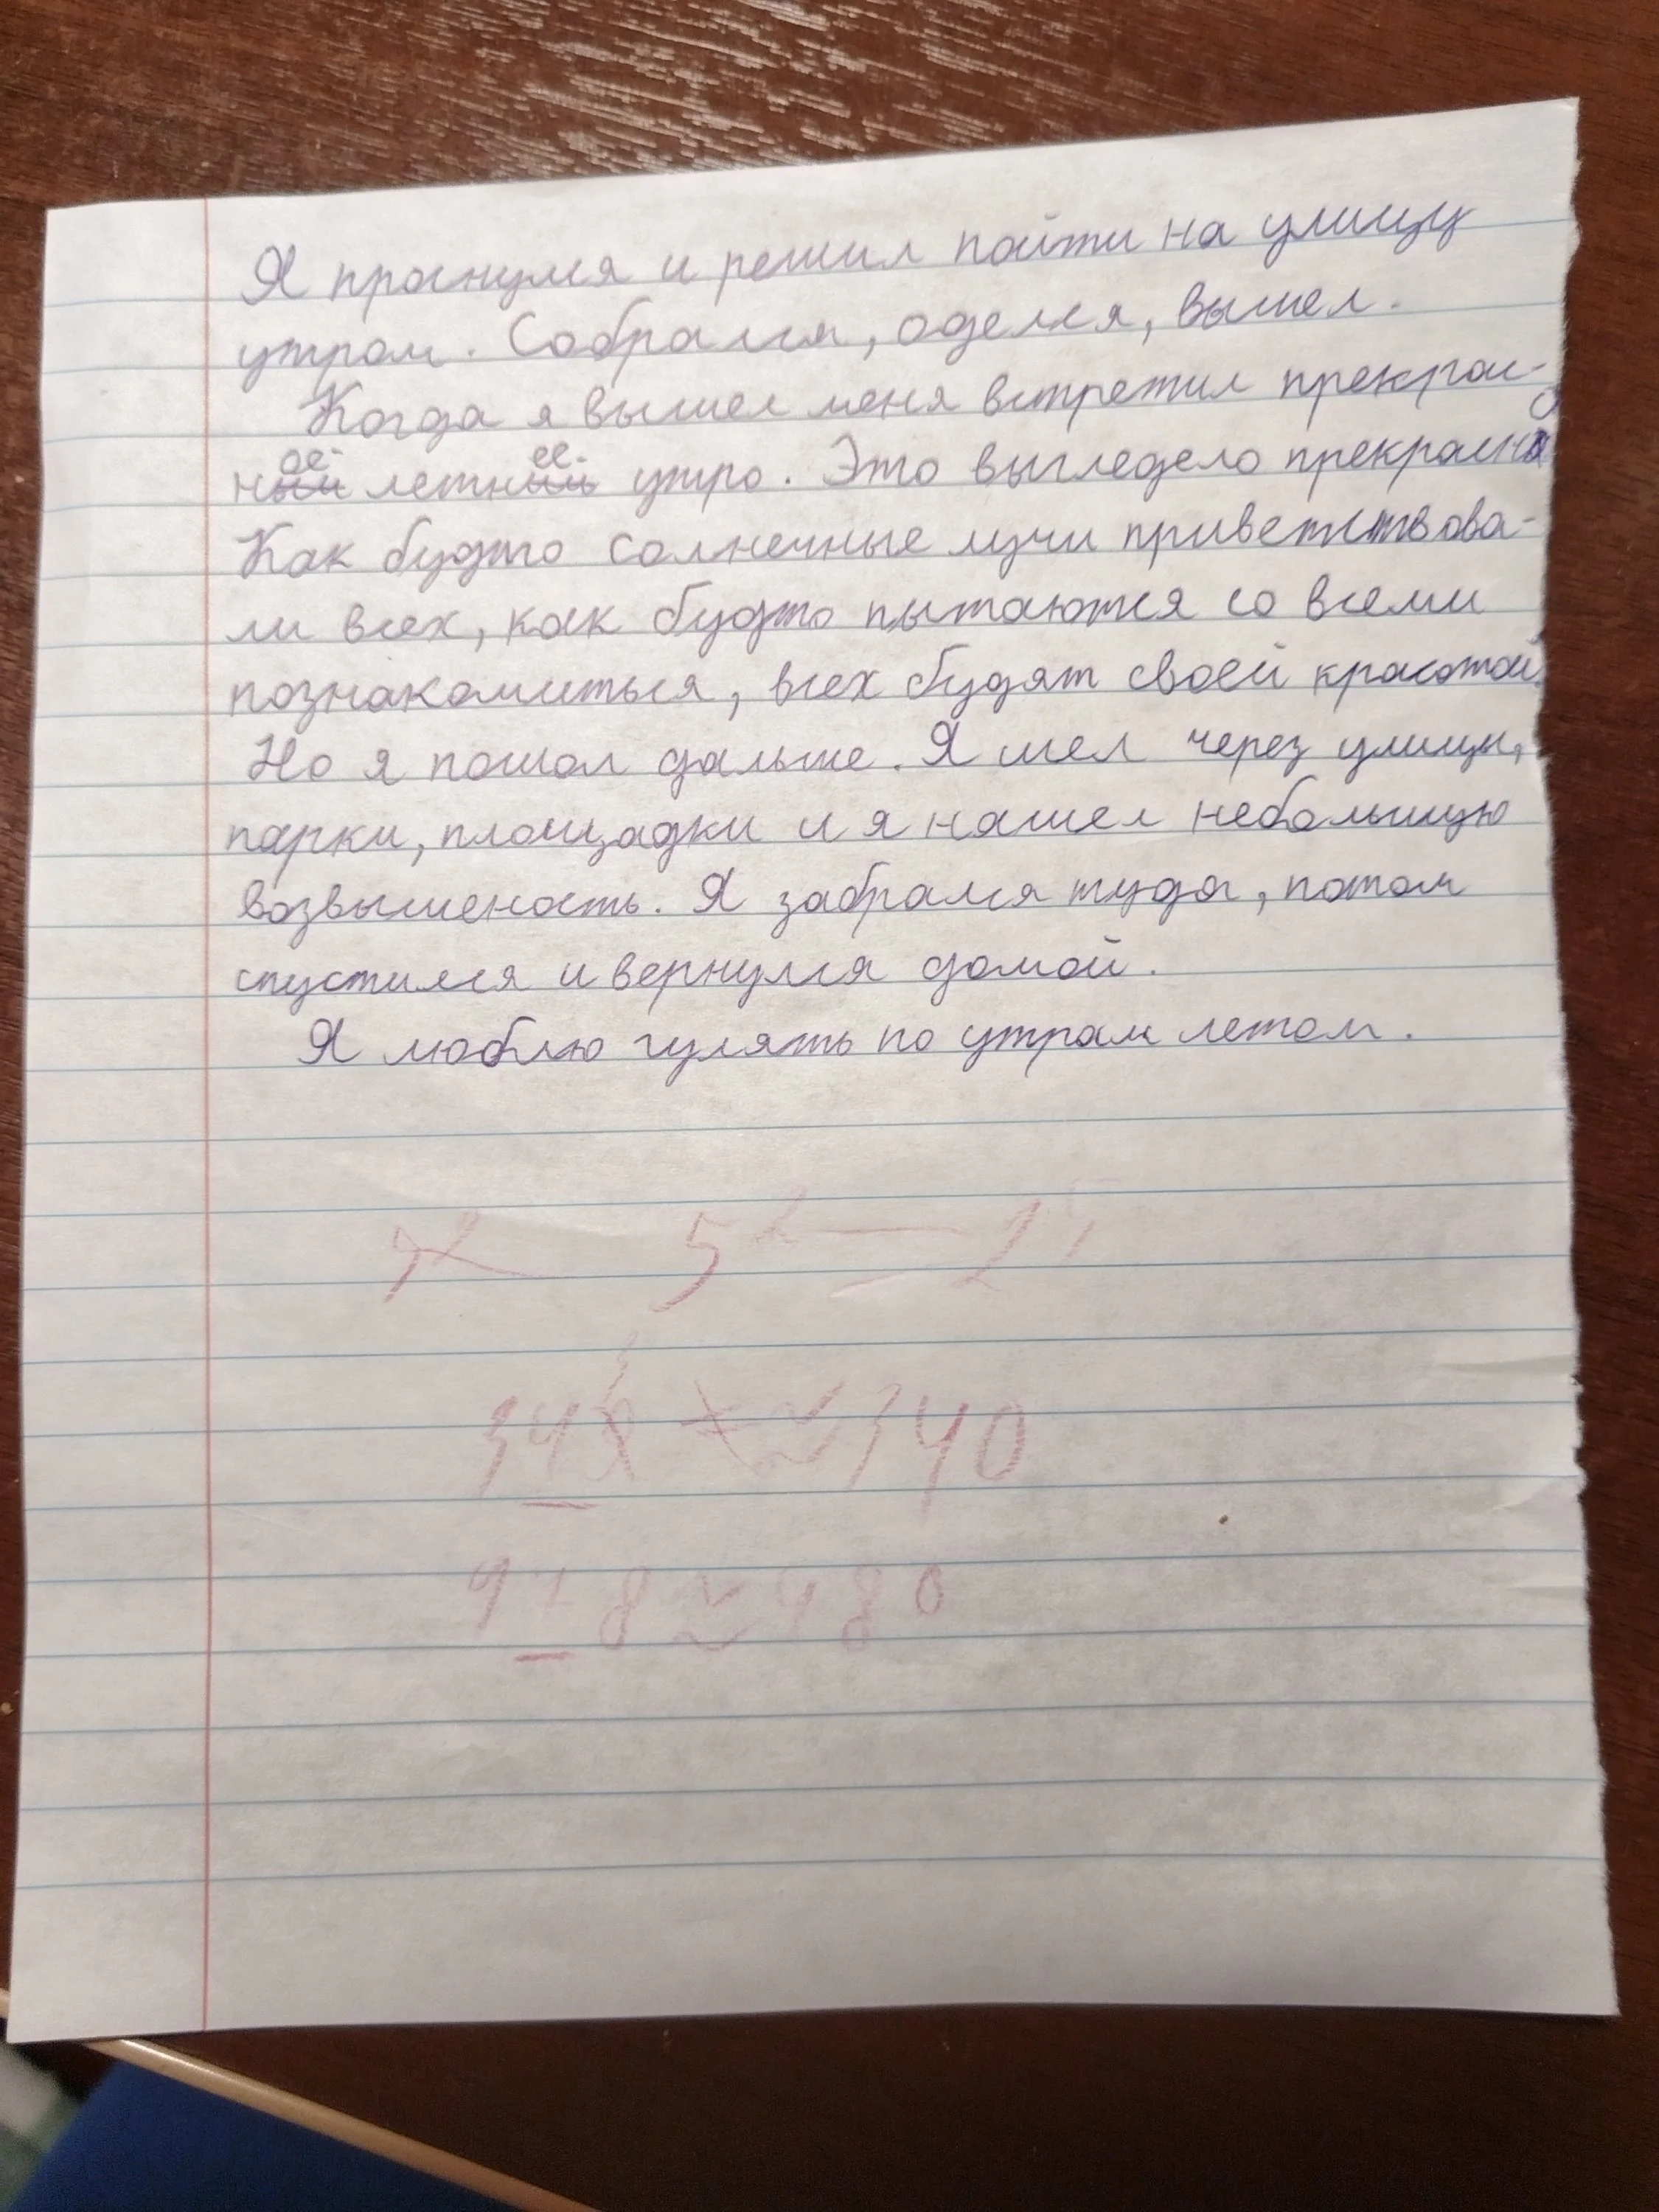 Я проснулся и решил пойти на улицу
утром. Собрался, оделся, вышел.
Когда я вышел меня встретил прекрас-
ное летнее утро. Это выгледело прекрасно
Как будто солнечные лучи приветствова-
ли всех, как будто пытаются со всеми
познакомиться, всех будят своей красотой.
Но я пошол дальше. Я шел через улицы,
парки, площадки и я нашел небольшую
возвышеность. Я забрался туда, потом
спустился и вернулся домой.
Я люблю гулять по утрам летом.
348 ≈ 340
8 ≈ 480